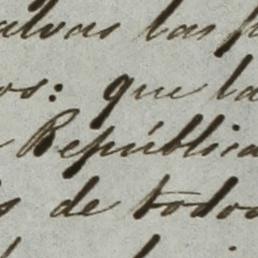 las
os: que la
República
de todos